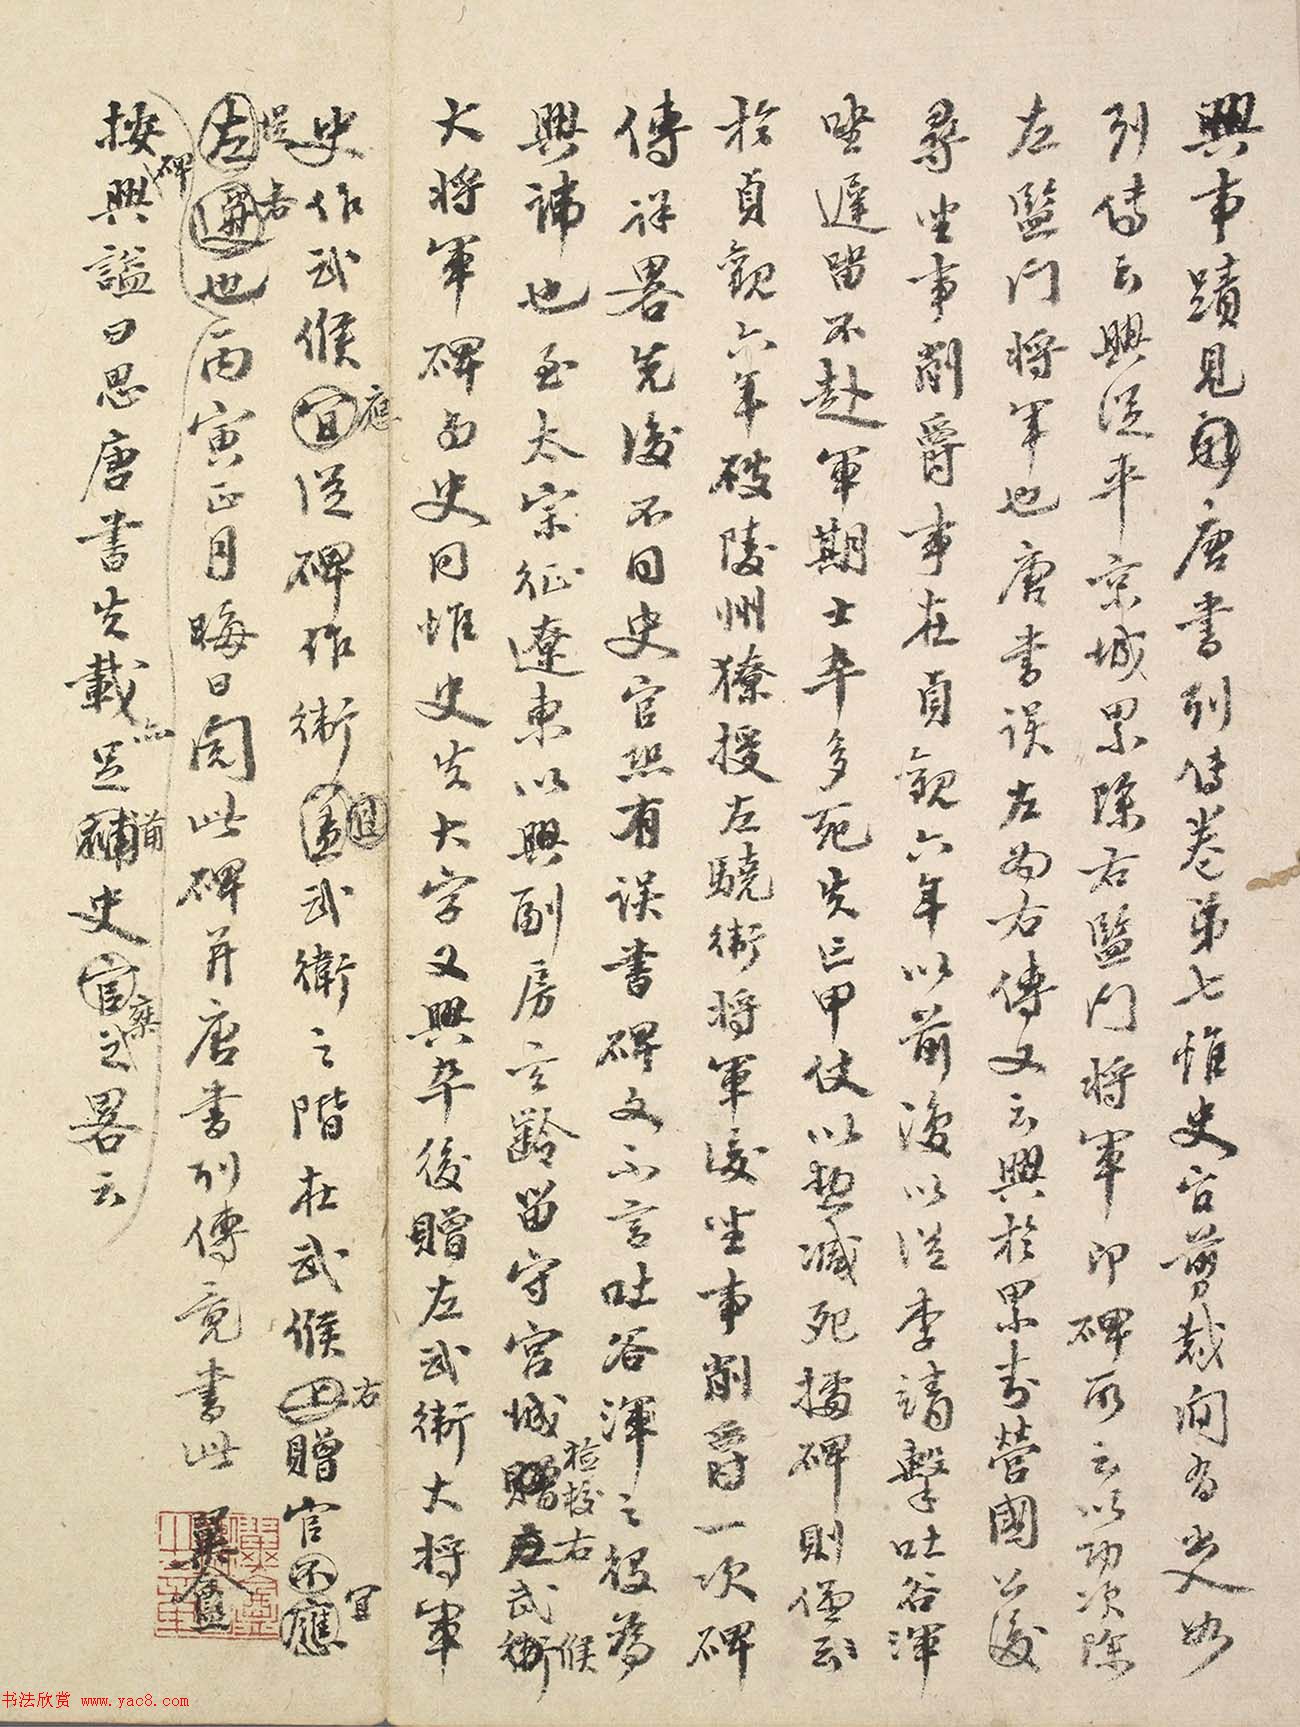 興事蹟見舊唐書列傳卷第七惟史官剪裁間有失如
列傳云興從平京城累除右監門將軍印碑所云以功次除
左監門將軍也唐書誤左為右傳又云興於累封營國公後
尋坐事削爵事在貞觀六年以前後以從李靖擊吐谷渾
坐遲留不赴軍期士卒多死失亡甲仗以勲減死據碑則僅云
於貞觀六年破陵州獠授左驍衛將軍後坐事削爵一次碑
傳祥畧先後不同史官恐有誤書碑文不言吐谷渾之役為
興諱也至太宗征遼東以興副房玄齡留守宮城贈左武衛
檢校右 候
大將軍碑與史同惟史失大字又興卒後贈左武衛大將軍
史作武候宜從碑作衛蓋武衛之階在武候上贈官不應
應 且 右 宜
左遷也丙寅正月晦日閱此碑并唐書列傳竟書此 翼盦
從右
按興謚曰思唐書失載足補史官之畧云
碑 亦 前 棄
书法欣赏 www.yac8.com